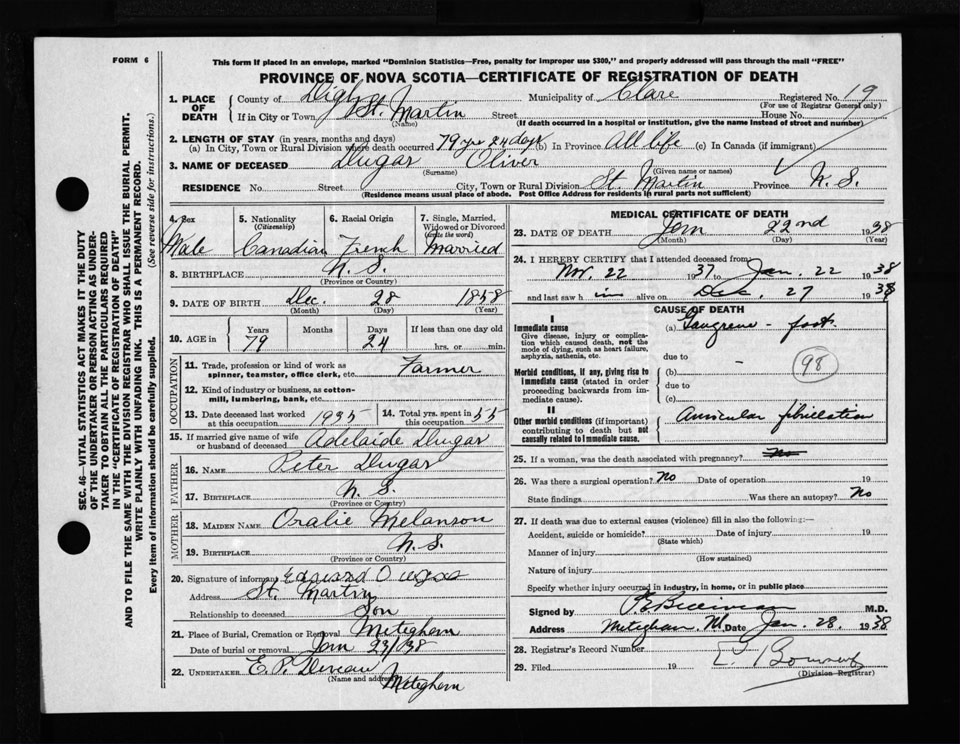 FORM 6
This form if placed in an envelope, marked "Dominion Statistics—Free, penalty for improper use $300," and properly addressed will pass through the mail "FREE"
PROVINCE OF NOVA SCOTIA—CERTIFICATE OF REGISTRATION OF DEATH
1. PLACE OF DEATH County of Digby Municipality of Clare Registered No. 19
(For use of Registrar General only)
If in City or Town St. Martin Street House No.
(Name) (If death occurred in a hospital or institution, give the name instead of street and number)
2. LENGTH OF STAY (in years, months and days)
(a) In City, Town or Rural Division where death occurred 79 yrs 24 days (b) In Province All life (c) In Canada (if immigrant)
3. NAME OF DECEASED Dugas Oliver
(Surname) (Given name or names)
RESIDENCE No. Street City, Town or Rural Division St. Martin Province N. S.
(Residence means usual place of abode. Post Office Address for residents in rural parts not sufficient)
4. Sex 5. Nationality (Citizenship) 6. Racial Origin 7. Single, Married, Widowed or Divorced (write the word)
Male Canadian French Married
8. BIRTHPLACE N. S.
(Province or Country)
9. DATE OF BIRTH Dec. 28 1858
(Month) (Day) (Year)
10. AGE in Years Months Days If less than one day old
79 24 hrs. or min.
OCCUPATION
11. Trade, profession or kind of work as spinner, teamster, office clerk, etc. Farmer
12. Kind of industry or business, as cotton-mill, lumbering, bank, etc.
13. Date deceased last worked at this occupation 1935 14. Total yrs. spent in this occupation 55
15. If married give name of wife or husband of deceased Adelaide Dugas
FATHER
16. NAME Peter Dugas
17. BIRTHPLACE N. S.
(Province or Country)
MOTHER
18. MAIDEN NAME Oralie Melanson
19. BIRTHPLACE N. S.
(Province or Country)
20. Signature of informant Edward Dugas
Address St. Martin
Relationship to deceased Son
21. Place of Burial, Cremation or Removal Meteghan
Date of burial or removal Jan 23/038
22. UNDERTAKER E. P. Deveau Meteghan
(Name and address)
MEDICAL CERTIFICATE OF DEATH
23. DATE OF DEATH Jan 22nd 1938
(Month) (Day) (Year)
24. I HEREBY CERTIFY that I attended deceased from:
Nov. 22 1937 to Jan. 22 1938
and last saw him alive on Dec. 27 193
CAUSE OF DEATH
I
Immediate cause (a) Gangrene - foot
Give disease, injury or complication which caused death, not the mode of dying, such as heart failure, asphyxia, asthenia, etc.
due to
Morbid conditions, if any, giving rise to immediate cause (stated in order proceeding backwards from immediate cause). (b) -
98
due to
(c)
II
Other morbid conditions (if important) contributing to death but not causally related to immediate cause. Auricular fibrillation
25. If a woman, was the death associated with pregnancy? No
26. Was there a surgical operation? No Date of operation 19
State findings Was there an autopsy? No
27. If death was due to external causes (violence) fill in also the following:—
Accident, suicide or homicide? Date of injury 19
(State which)
Manner of injury
(How sustained)
Nature of injury
Specify whether injury occurred in industry, in home, or in public place
Signed by M.D.
Address Meteghan, Date Jan. 28. 1938
28. Registrar's Record Number
29. Filed 19
(Division Registrar)
SEC. 46—VITAL STATISTICS ACT MAKES IT THE DUTY
OF THE UNDERTAKER OR PERSON ACTING AS UNDER-
TAKER TO OBTAIN ALL THE PARTICULARS REQUIRED
IN THE "CERTIFICATE OF REGISTRATION OF DEATH"
AND TO FILE THE SAME WITH THE DIVISION REGISTRAR WHO SHALL ISSUE THE BURIAL PERMIT.
WRITE PLAINLY WITH UNFADING INK. THIS IS A PERMANENT RECORD.
Every item of information should be carefully supplied. (See reverse side for instructions.)